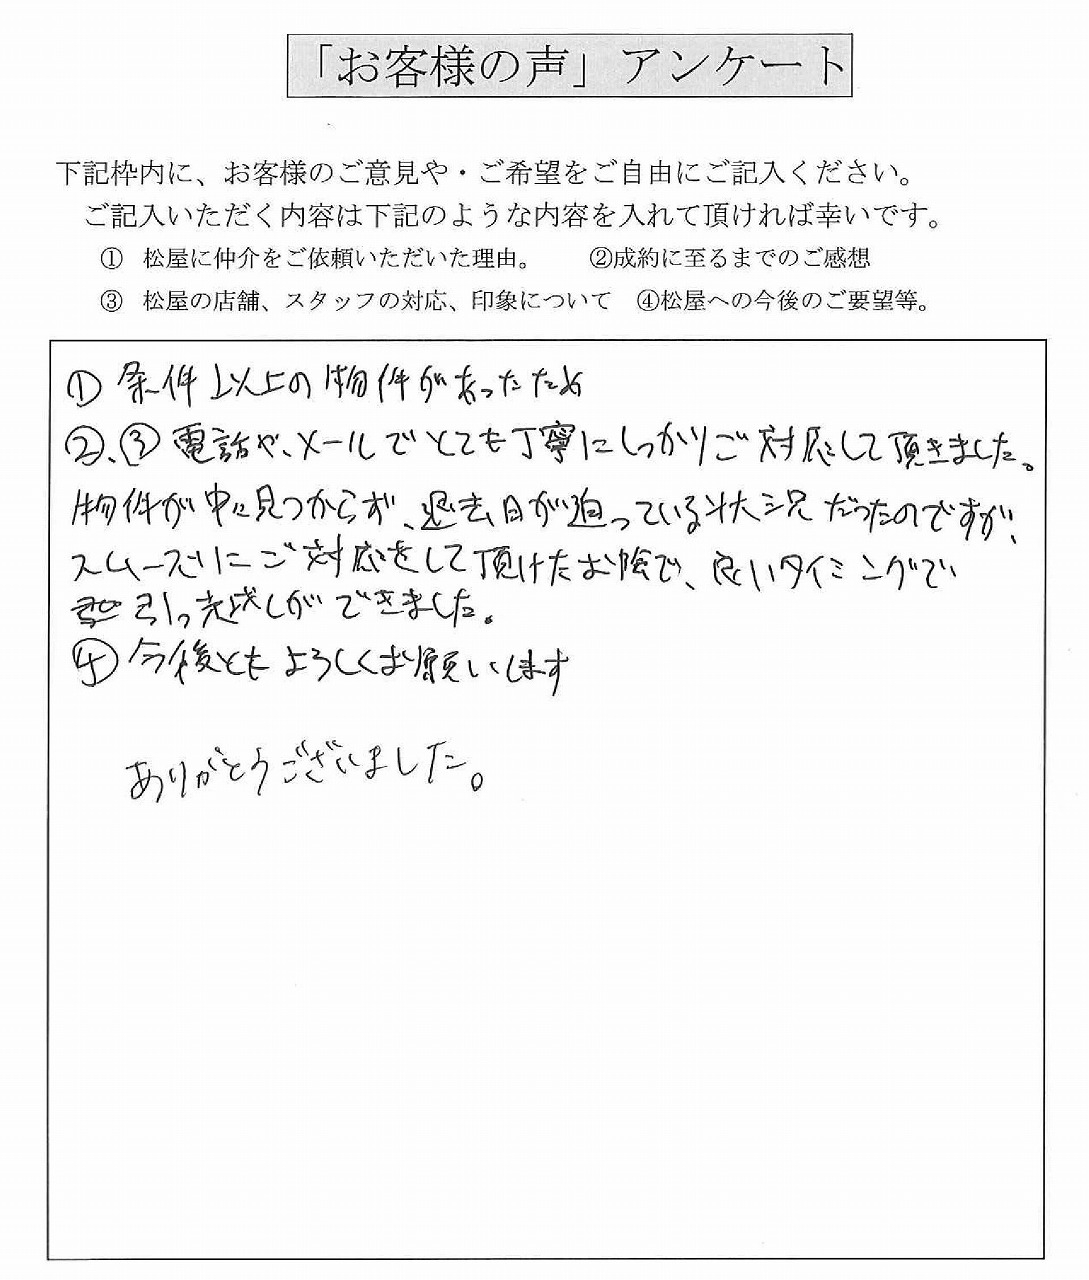 「お客様の声」アンケート
下記枠内に、お客様のご意見や・ご希望をご自由にご記入ください。
ご記入いただく内容は下記のような内容を入れて頂ければ幸いです。
① 松屋に仲介をご依頼いただいた理由。 ②成約に至るまでのご感想
③ 松屋の店舗、スタッフの対応、印象について ④松屋への今後のご要望等。
① 条件以上の物件があったため
②、③ 電話や、メールでとても丁寧にしっかりご対応して頂きました。
物件が中々見つからず、退去日が迫っている状況だったのですが、
スムーズにご対応をして頂けたお陰で、良いタイミングで
引っ越しができました。
④ 今後ともよろしくお願いします
ありがとうございました。